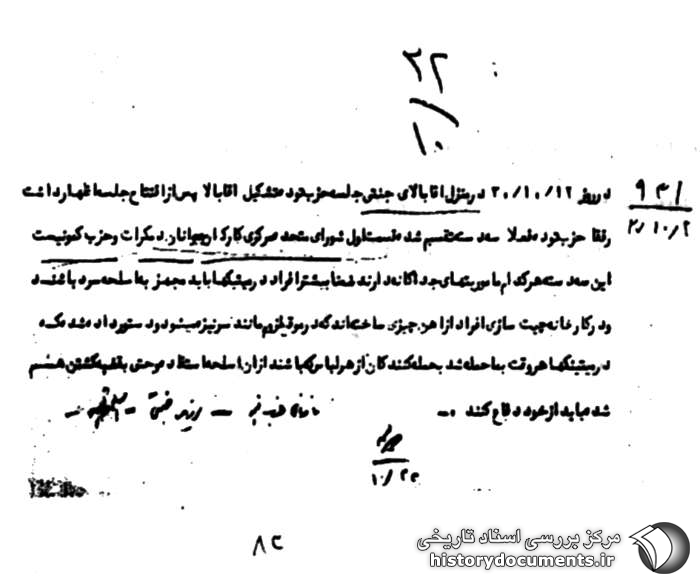 ۲۲
۱۰
۹۴۱
۲/۱۰/۲
در روز ۳۰/۱۰/۱۲ در منزل اقا بالای جنتی جلسه حزب توده متشکیل اقا بالا پس از افتتاح جلسه اظهار داشت
رفقا حزب توده فعلا سه دسته تقسیم شد قسمت اول شورای متحد مرکزی کارگران جوانان دمکرات وحزب کمونیست
این سه دسته هر کدام ماموریتهای جداگانه دارند ضمنا بیشتر افراد در میتینگها باید مجهز به اسلحه سرد باشند و
ود رکارخانه چیت سازی افراد از اهن چیزی ساخته‌اند که در موقع لزوم مانند سرنیزه میشود و دستور داده شد که
در میتینگها هر وقت بما حمله شد بحمله کنندگان از هر لباس که باشند از ان اسلحه استفاده و حتی بقیمه کشتن هم
شد مباید از خود دفاع کند
۱۰/۲۲
۸۲
مرکز بررسی اسناد تاریخی
historydocuments.ir